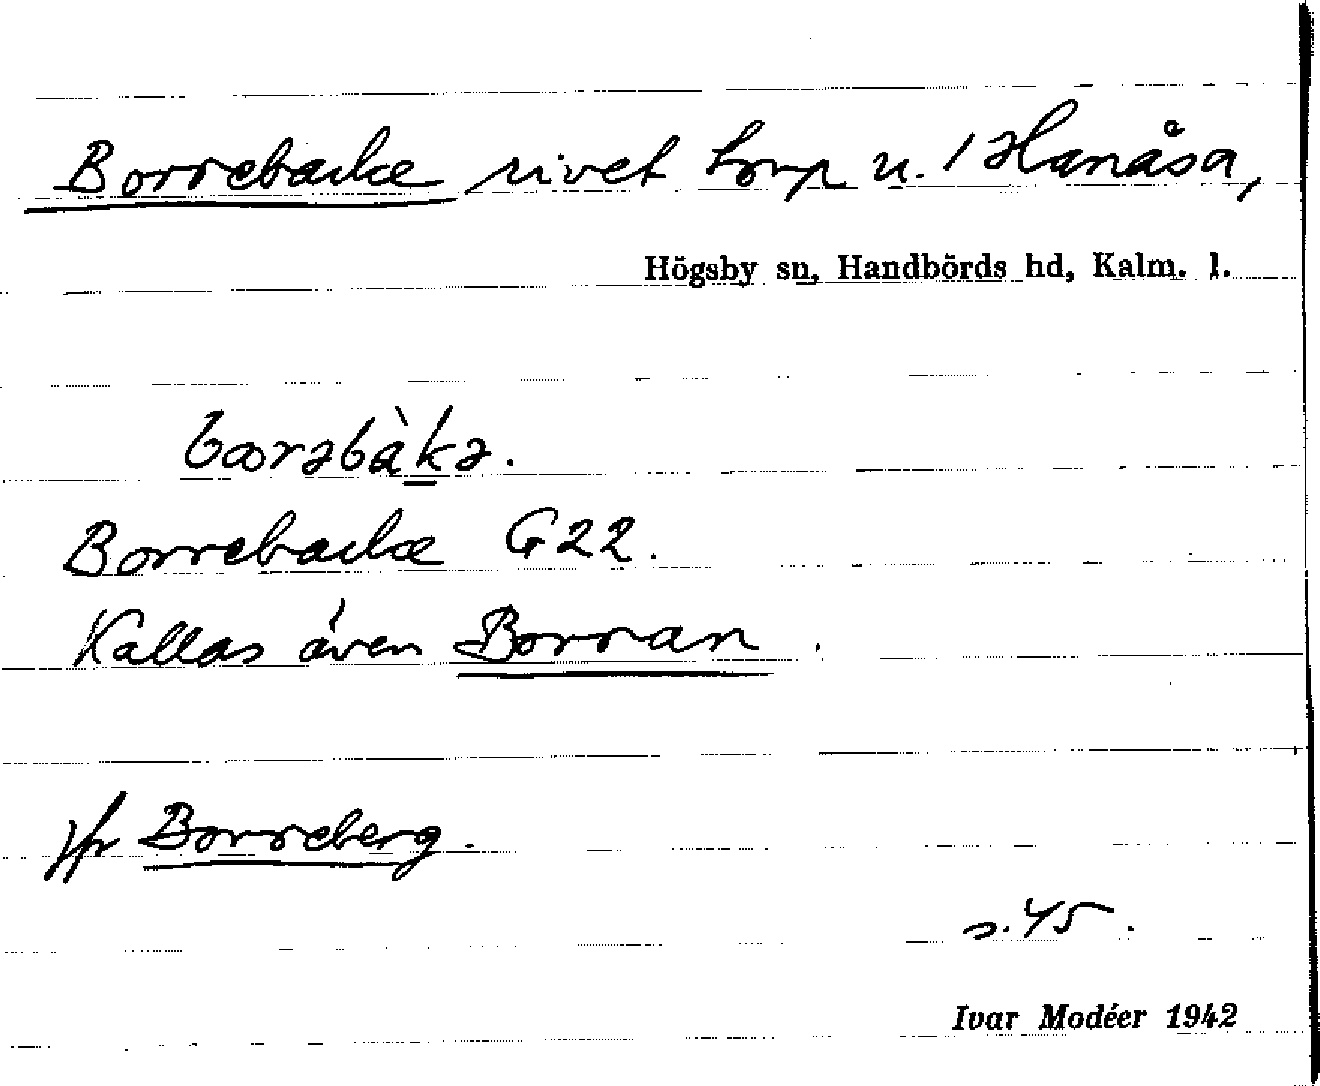 Borrebacke rivet torp u. / Hanåsa,
Högsby sn, Handbörds hd, Kalm. l.
bɷrəbàkə.
Borrebacke G22.
Kallas även Borran.
jfr Borreberg.
s. 45.
Ivar Modéer 1942